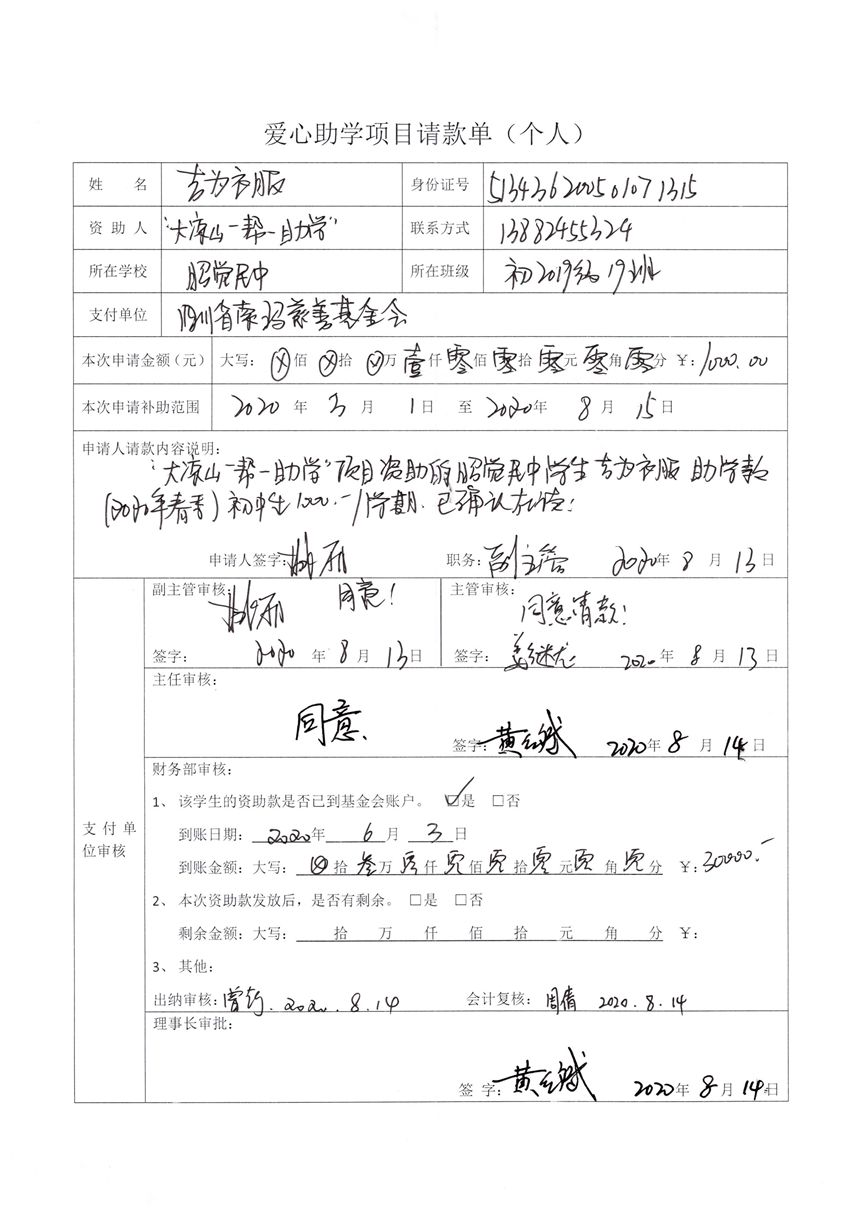 爱心助学项目请款单（个人）
姓 名 吉为衣服 身份证号 513436200501071315
资助人 "大凉山一帮一助学" 联系方式 13882455324
所在学校 昭觉民中 所在班级 初2019级19班
支付单位 四川省索玛慈善基金会
本次申请金额（元） 大写：ⓧ佰ⓧ拾ⓧ万壹仟零佰零拾零元零角零分 ￥：1000.00
本次申请补助范围 2020年3月1日至2020年8月15日
申请人请款内容说明：
"大凉山一帮一助学"项目资助的昭觉民中学生吉为衣服助学款
(2020年春季)初中生1000.-/学期.已确认在校！
申请人签字： 职务：副主管 2020年8月13日
副主管审核： 同意！ 主管审核： 同意请款！
签字： 2020年8月13日 签字：姜继尤 2020年8月13日
主任审核：
同意、
签字：黄红斌 2020年8月14日
支付单位审核
财务部审核：
1、该学生的资助款是否已到基金会账户。 ☑是 □否
到账日期：2020年6月3日
到账金额：大写：ⓧ拾叁万零仟零佰零拾零元零角零分 ￥：30000.-
2、本次资助款发放后，是否有剩余。 □是 □否
剩余金额：大写： 拾 万 仟 佰 拾 元 角 分 ￥：
3、其他：
出纳审核： 2020.8.14 会计复核：周倩 2020.8.14
理事长审批：
签字：黄红斌 2020年8月14日